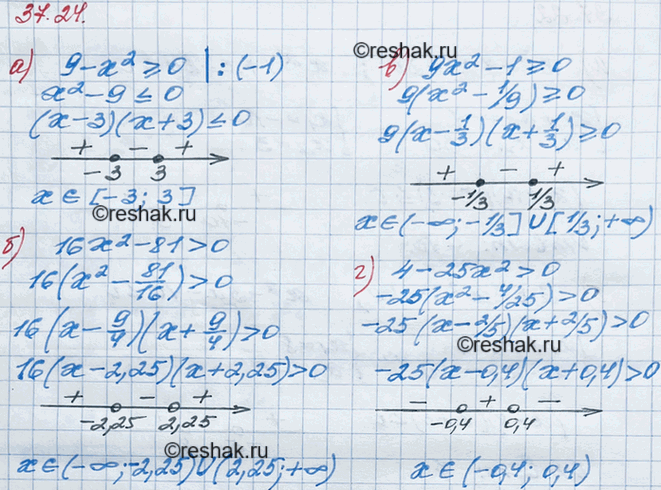 37.24.
©reshak.ru
а) 9-x² ≥ 0 | : (-1)
x² - 9 ≤ 0
(x-3)(x+3) ≤ 0
+ - +
-3 3
x ∈ [-3; 3]
©reshak.ru
б) 16x² - 81 > 0
16(x² - 81/16) > 0
16(x - 9/4)(x + 9/4) > 0
16(x - 2,25)(x + 2,25) > 0
+ - +
-2,25 2,25
©reshak.ru
x ∈ (-∞; -2,25) U (2,25; +∞)
©reshak.ru
в) 9x² - 1 ≥ 0
9(x² - 1/9) ≥ 0
9(x - 1/3)(x + 1/3) ≥ 0
+ - +
-1/3 1/3
x ∈ (-∞; -1/3] U [1/3; +∞)
г) 4 - 25x² > 0
-25(x² - 4/25) > 0
-25(x - 2/5)(x + 2/5) > 0
©reshak.ru
-25(x - 0,4)(x + 0,4) > 0
- + -
-0,4 0,4
x ∈ (-0,4; 0,4)